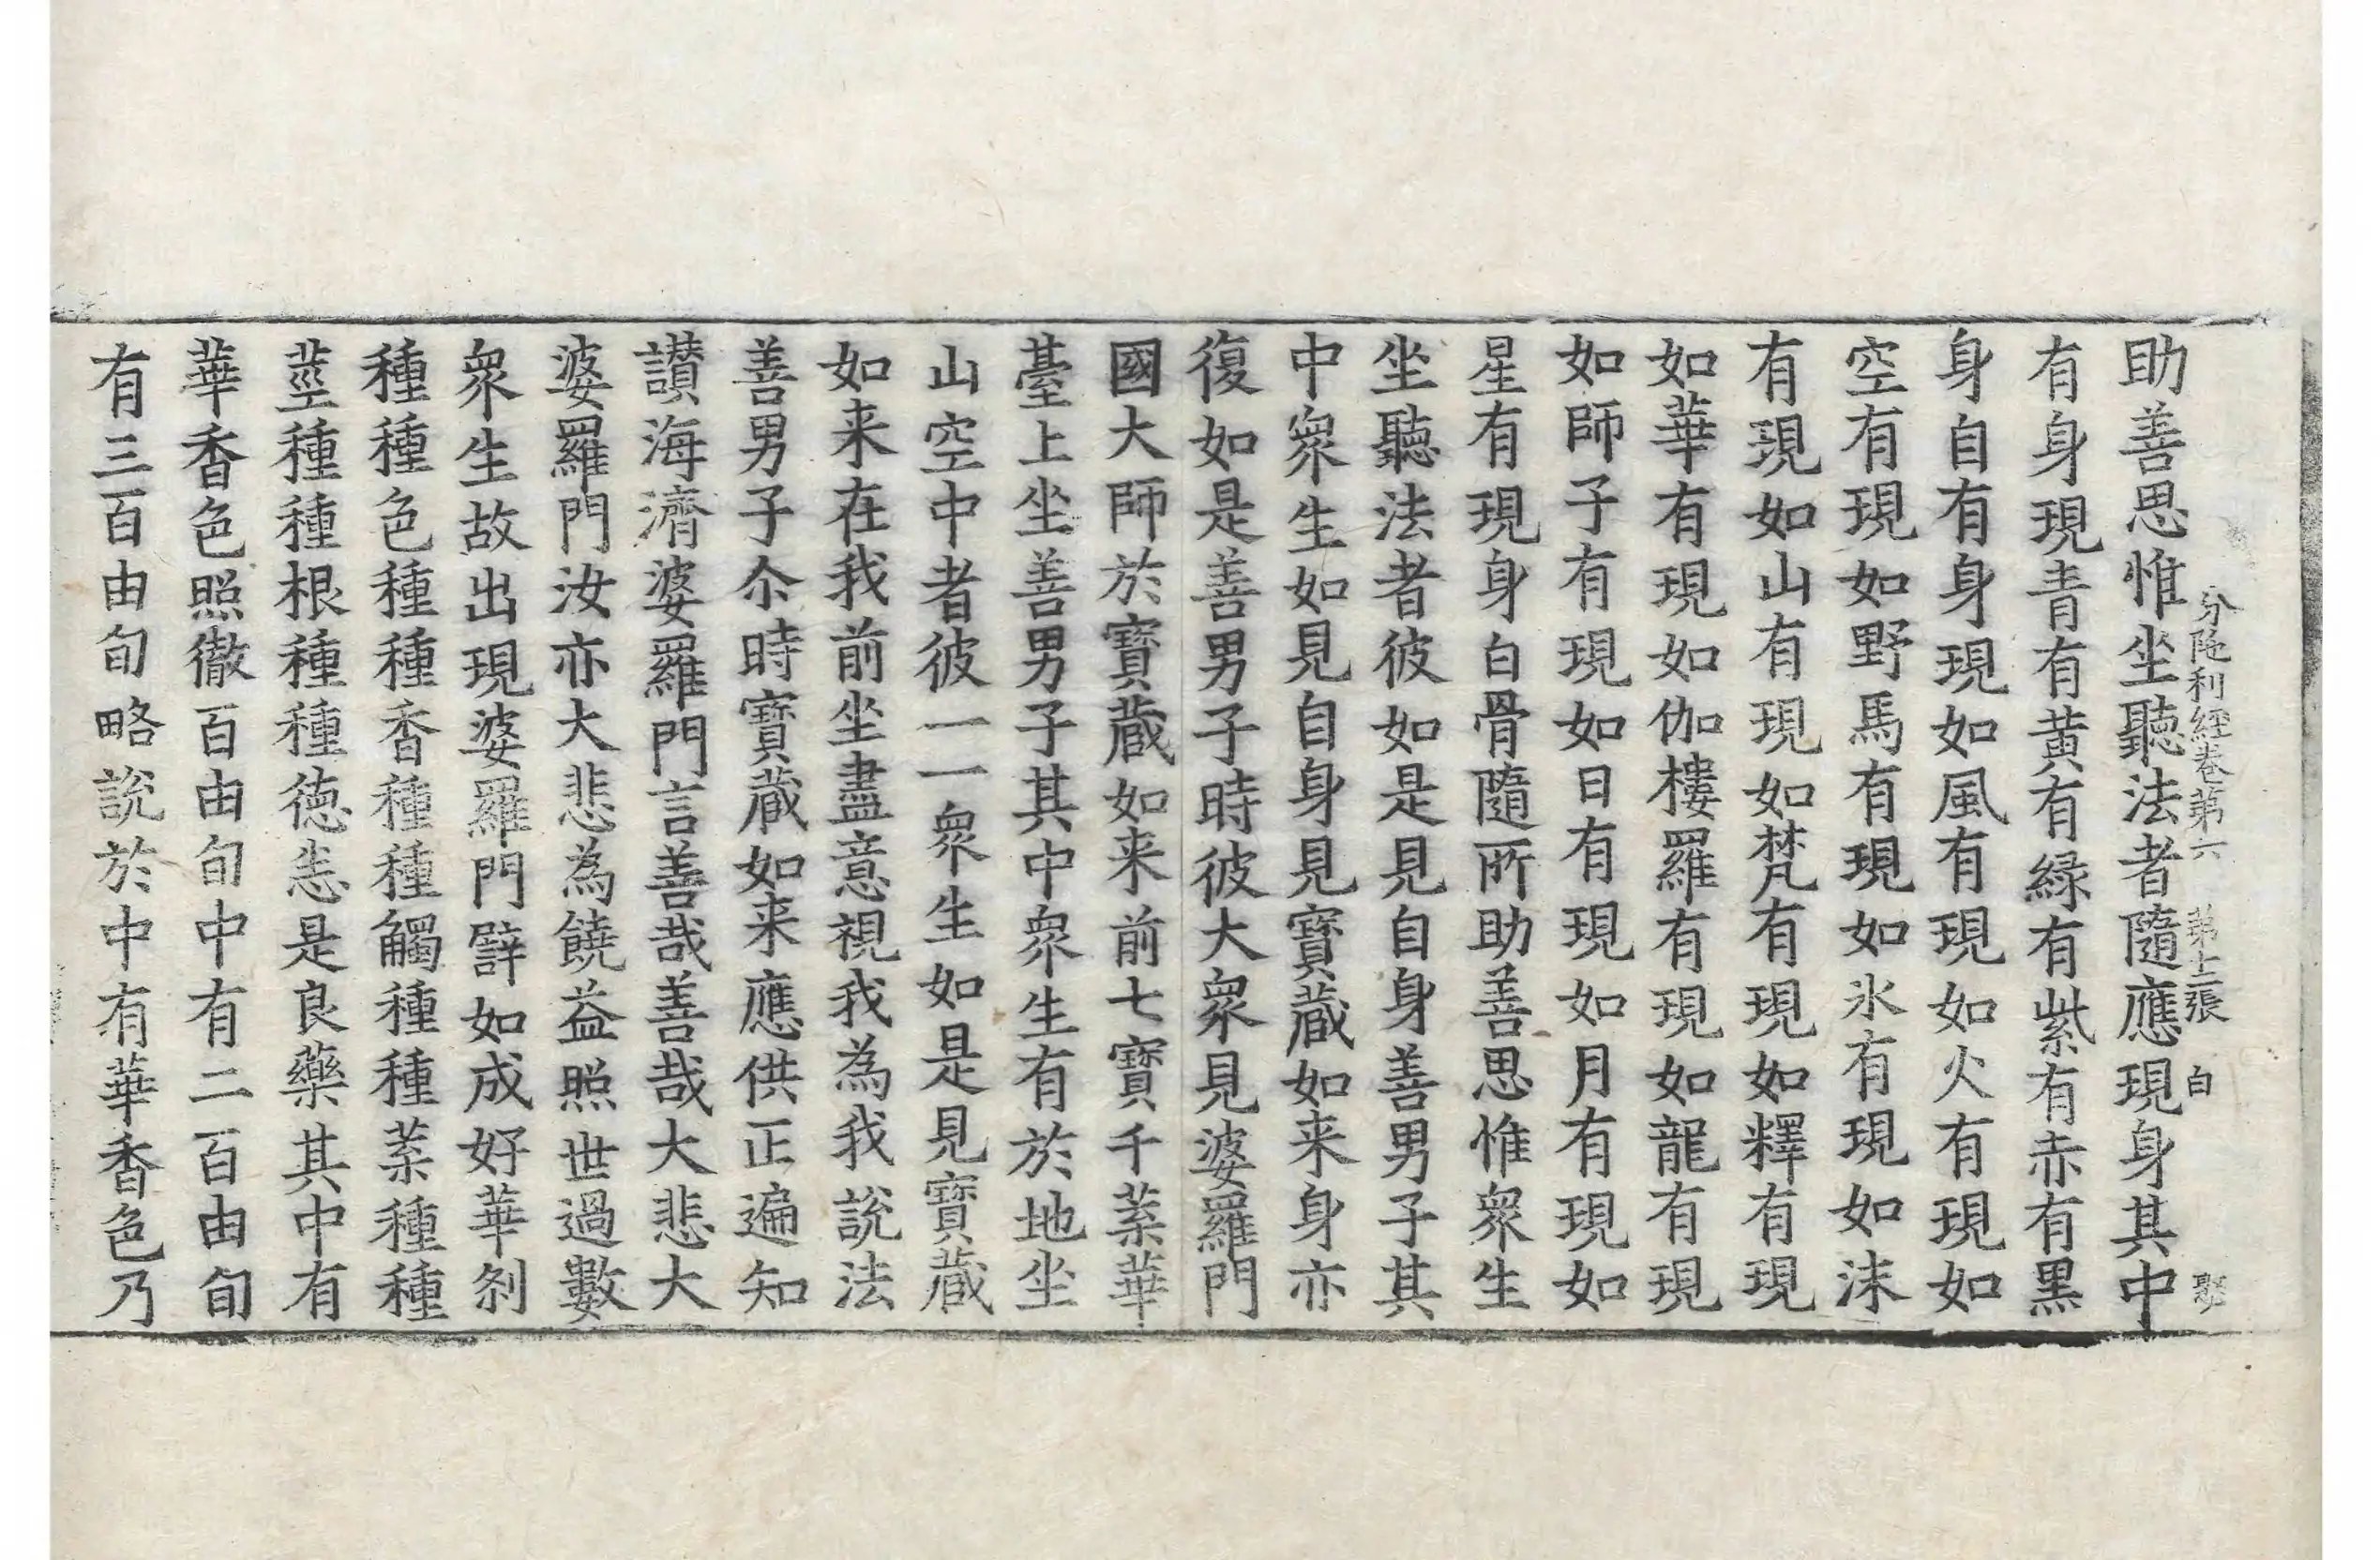 分陁利經卷第六　第七張　白
助善思惟坐聽法者隨應現身其中
有身現青有黄有緑有紫有赤有黑
身自有身現如風有現如火有現如
空有現如野馬有現如氷有現如沫
有現如山有現如梵有現如釋有現
如華有現如伽樓羅有現如龍有現
如師子有現如日有現如月有現如
星有現身白骨隨所助善思惟衆生
坐聽法者彼如是見自身善男子其
中衆生如見自身見寶蔵如来身亦
復如是善男子時彼大衆見婆羅門
國大師於寶蔵如来前七寶千葉華
臺上坐善男子其中衆生有於地坐
山空中者彼一一衆生如是見寶蔵
如来在我前坐盡意視我為我說法
善男子尒時寶蔵如来應供正遍知
讃海濟婆羅門言善哉善哉大悲大
婆羅門汝亦大悲為饒益照世過數
衆生故出現婆羅門譬如成好華剎
種種色種種香種種觸種種葉種種
莖種種根種種徳恙是良藥其中有
華香色照徹百由旬中有二百由旬
有三百由旬略說於中有華香色乃